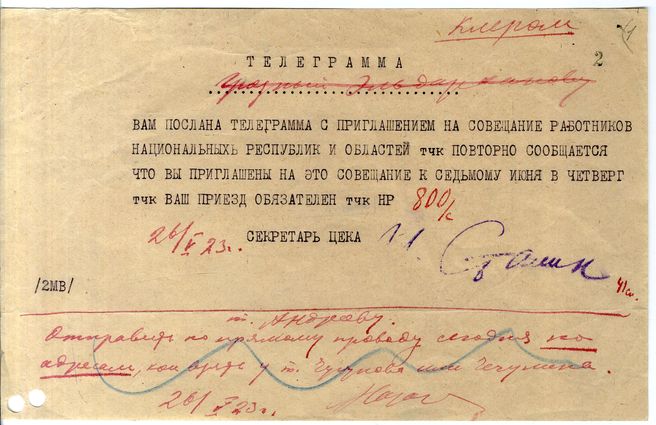 Клером
2
ТЕЛЕГРАММА
Грозный Эльдарханову
ВАМ ПОСЛАНА ТЕЛЕГРАММА С ПРИГЛАШЕНИЕМ НА СОВЕЩАНИЕ РАБОТНИКОВ
НАЦИОНАЛЬНЫХЬ РЕСПУБЛИК И ОБЛАСТЕЙ тчк ПОВТОРНО СООБЩАЕТСЯ
ЧТО ВЫ ПРИГЛАШЕНЫ НА ЭТО СОВЕЩАНИЕ К СЕДЬМОМУ ИЮНЯ В ЧЕТВЕРГ
тчк ВАШ ПРИЕЗД ОБЯЗАТЕЛЕН тчк НР 800/с
26/V 23г.
СЕКРЕТАРЬ ЦЕКА И. Сталин
/2МВ/
т.
Отправить по прямому проводу сегодня по
адресам, кои взять у т. или
26/V 23г.